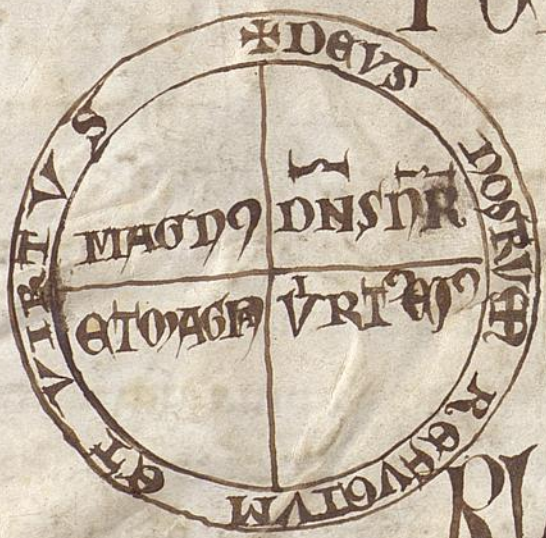 ✠ DEVS NOSTRVM REFVGIVM ET VIRTVS
MAGNꝰ DN̄S N̄R
ET MAGNA VͥRTꝰ EIꝰ